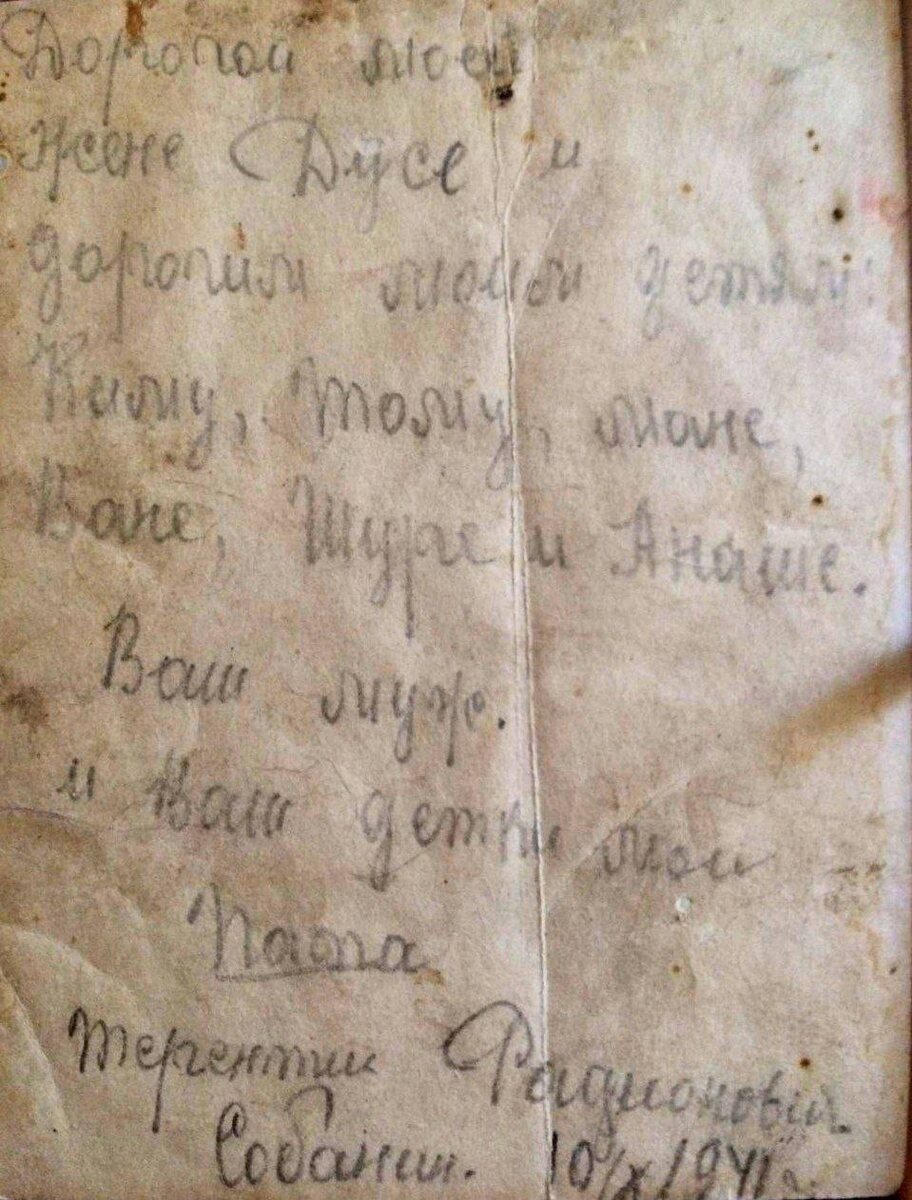 Дорогой моей
жене Дусе и
дорогим моим детям:
Киму, Тому, Мане,
Ване, Шуре и Анаше.
Ваш муж.
и Ваш детки мои
Папа
Терентий Радионович
Собанин. 10/X 1941 г.